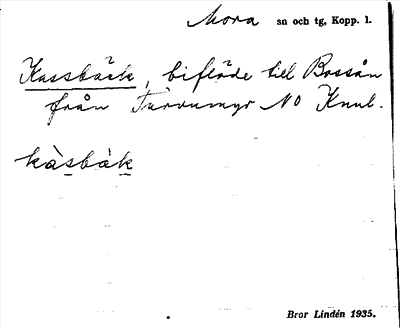 Mora sn och tg, Kopp. l.
Kassbäck, biflöde till Bossån
från Turvumyr NO Knul.
kàsbàk
Bror Lindén 1935.